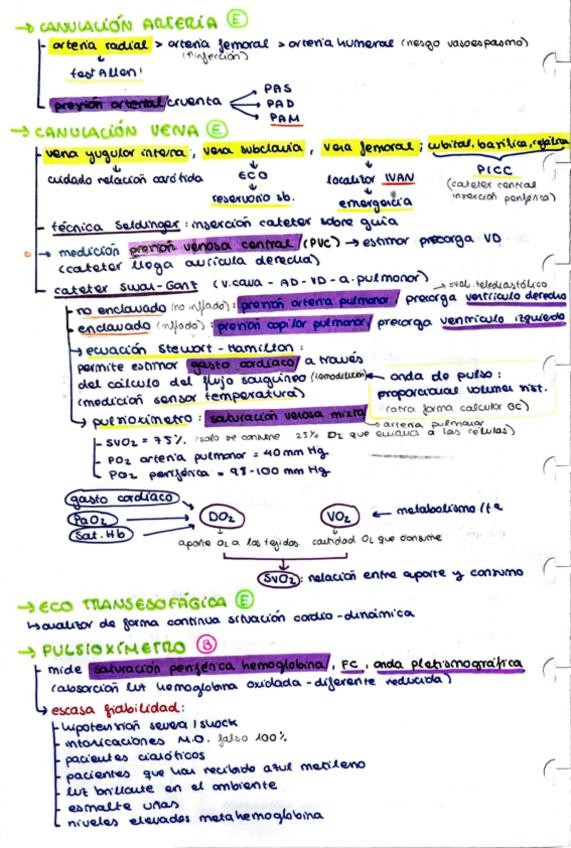 → CANULACIÓN ARTERIA (E)
- arteria radial > arteria femoral > arteria humeral (riesgo vasoespasmo)
(↑infección)
test Allen!
presión arterial cruenta
PAS
PAD
PAM
→ CANULACIÓN VENA (E)
- vena yugular interna, vena subclavia, vena femoral; cubital, basílica, cefálica
cuidado relación carótida
ECO
reservorio sb.
localizar IVAN
emergencia
PICC
(catéter central
inserción periférica)
- técnica Seldinger: inserción catéter sobre guía
→ medición presión venosa central (PVC) → estimar precarga VD
(catéter llega aurícula derecha)
- catéter Swan-Ganz (v.cava - AD - VD - a.pulmonar)
→ =vol. telediastólico
- no enclavado (no inflado): presión arteria pulmonar / precarga ventrículo derecho
- enclavado (inflado): presión capilar pulmonar / precarga ventrículo izquierdo
→ ecuación Stewart-Hamilton:
permite estimar gasto cardíaco a través
del cálculo del flujo sanguíneo (termodilución)
(medición sensor temperatura)
onda de pulso:
proporcional volumen sist.
(otra forma calcular GC)
→ pulsioxímetro: saturación venosa mixta
→ arteria pulmonar
- SvO2 = 75% (solo se consume 25% O2 que enviamos a las células)
- PO2 arteria pulmonar = 40 mm Hg
- PO2 periférica = 98-100 mm Hg
gasto cardíaco
PaO2
Sat. Hb
DO2
VO2 ← metabolismo / tª
aporte O2 a los tejidos
cantidad O2 que consume
SvO2: relación entre aporte y consumo
→ ECO TRANSESOFÁGICA (E)
↳ valorar de forma continua situación cardio-dinámica
→ PULSIOXÍMETRO (B)
- mide saturación periférica hemoglobina, FC, onda pletismográfica
(absorción luz hemoglobina oxidada - diferente reducida)
↳ escasa fiabilidad:
- hipotensión severa / shock
- intoxicaciones M.O. falso 100%
- pacientes cianóticos
- pacientes que han recibido azul metileno
- luz brillante en el ambiente
- esmalte uñas
- niveles elevados metahemoglobina